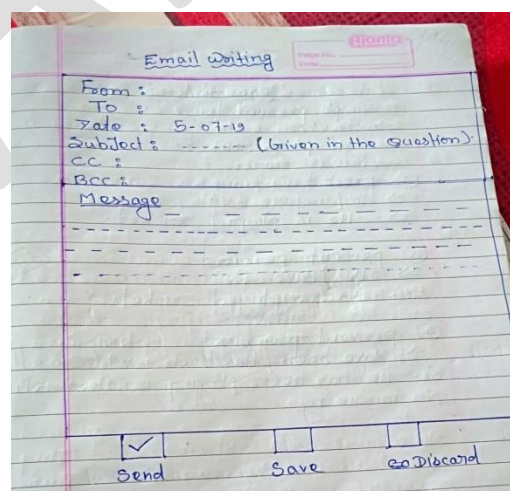 Email Writing
Page No.
Date
From :
To :
Date : 5-07-19
Subject : ------ (Given in the Question).
CC :
BCC :
Message _ _ _ _ _ _ _ _ _
Send
Save
Discard